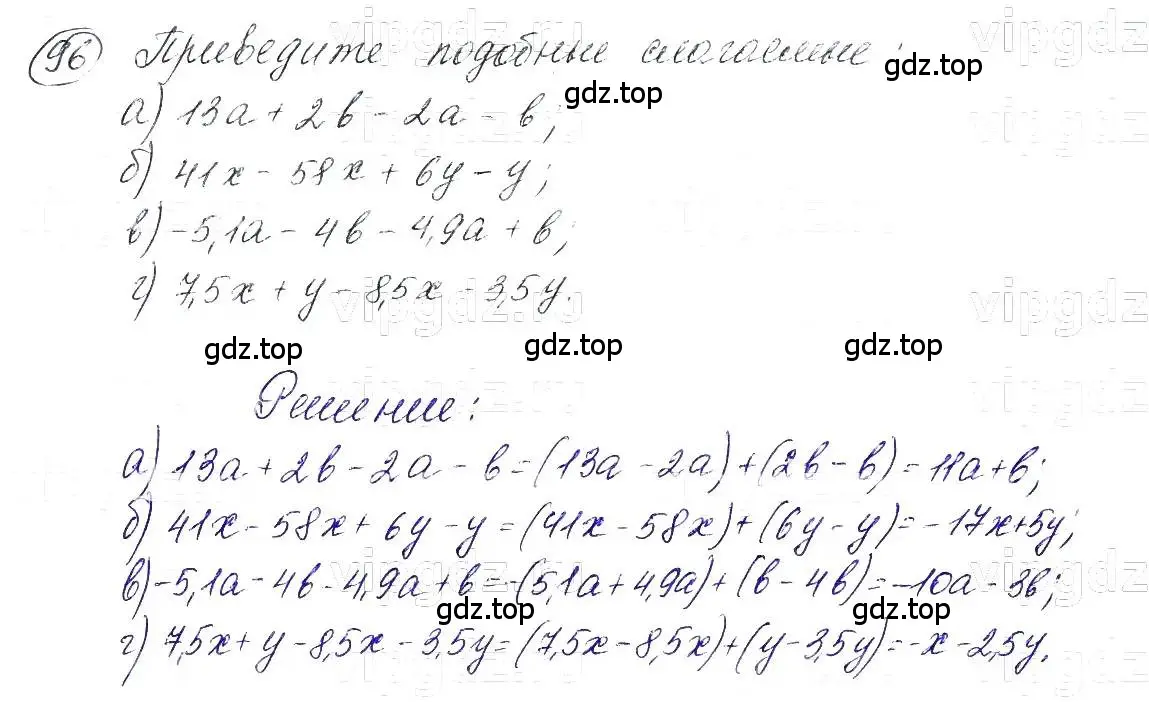 96 Приведите подобные слагаемые:
gdz.top
gdz.top
а) 13a + 2b - 2a - b;
б) 41x - 58x + 6y - y;
в) -5,1a - 4b - 4,9a + b;
г) 7,5x + y - 8,5x - 3,5y.
gdz.top
gdz.top
gdz.top
Решение:
а) 13a + 2b - 2a - b = (13a - 2a) + (2b - b) = 11a + b;
б) 41x - 58x + 6y - y = (41x - 58x) + (6y - y) = -17x + 5y;
в) -5,1a - 4b - 4,9a + b = -(5,1a + 4,9a) + (b - 4b) = -10a - 3b;
gdz.top
gdz.top
г) 7,5x + y - 8,5x - 3,5y = (7,5x - 8,5x) + (y - 3,5y) = -x - 2,5y.